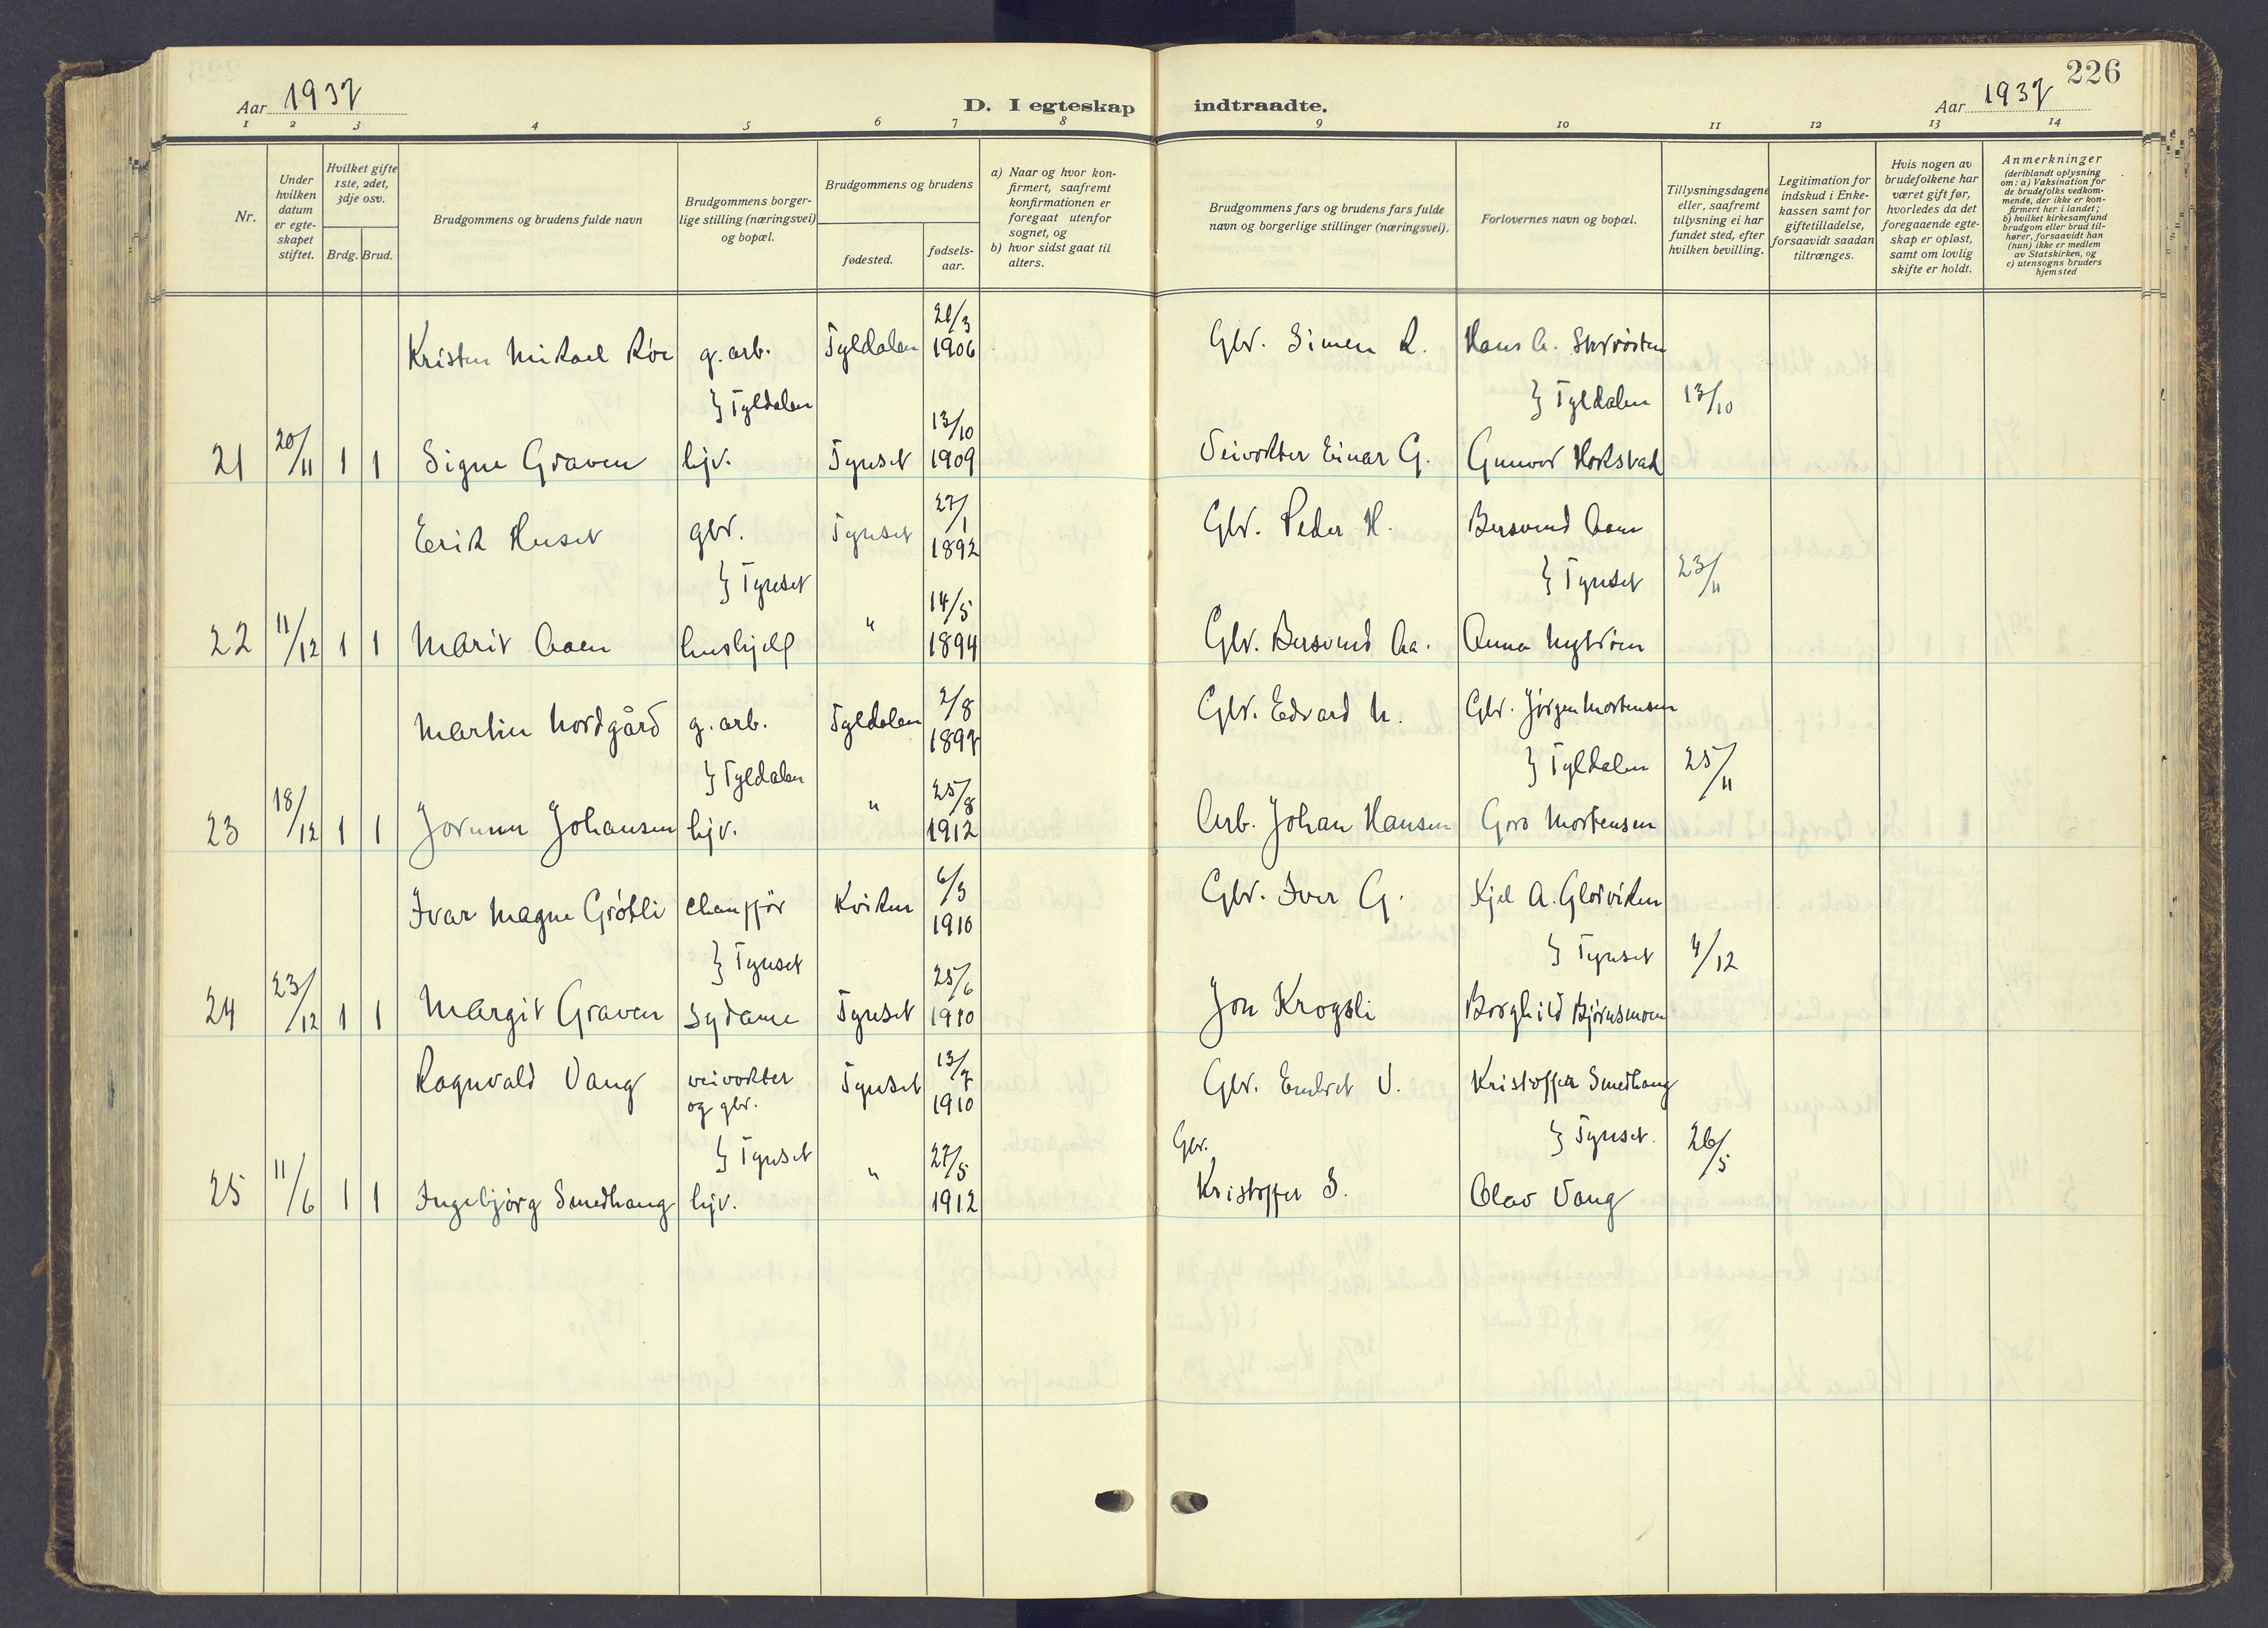 226
Aar 1937 D. I egteskap indtraadte. Aar 1937
1 2 3 4 5 6 7 8 9 10 11 12 13 14
Nr.
Under hvilken datum er egte- skapet stiftet.
Hvilket gifte 1ste, 2det, 3dje osv.
Brdg. Brud.
Brudgommens og brudens fulde navn
Brudgommens borger- lige stilling (næringsvei) og bopæl.
Brudgommens og brudens
fødested. fødsels- aar.
a) Naar og hvor kon- firmert, saafremt konfirmationen er foregaat utenfor sognet, og
b) hvor sidst gaat til alters.
Brudgommens fars og brudens fars fulde navn og borgerlige stillinger (næringsvei).
Forlovernes navn og bopæl.
Tillysningsdagene eller, saafremt tillysning ei har fundet sted, efter hvilken bevilling.
Legitimation for indskud i Enke- kassen samt for giftetilladelse, forsaavidt saadan tiltrænges.
Hvis nogen av brudefolkene har været gift før, hvorledes da det foregaaende egte- skap er opløst, samt om lovlig skifte er holdt.
Anmerkninger (deriblandt oplysning om: a) Vaksination for de brudefolks vedkom- mende, der ikke er kon- firmert her i landet; b) hvilket kirkesamfund brudgom eller brud til- hører, forsaavidt han (hun) ikke er medlem av Statskirken, og c) utensogns bruders hjemsted
Kristen Mikael Röe g. arb. Tyldalen 21/3 1906 Gbr. Simen R. Hans A.
} Tyldalen } Tyldalen 13/10
21 20/11 1 1 Signe Graven hjv. Tynset 13/10 1909 Veivokter Einar G. Gunvor Hokstad
Erik Huset gbr. Tynset 27/1 1892 Gbr. Peder H. Bersvend Aaen
} Tynset } Tynset 23/11
22 11/12 1 1 Marit Aaen hushjelp " 14/5 1894 Gbr. Bersvend Aa. Anna Nytrøen
Martin Nordgård g. arb. Tyldalen 2/8 1897 Gbr. Edvard N. Gbr. Jørgen Mortensen
} Tyldalen } Tyldalen 25/11
23 18/12 1 1 Jorunn Johansen hjv. " 25/8 1912 Arb. Johan Hansen Goro Mortensen
Ivar Magne Grötli chauffør Kvikne 6/3 1910 Gbr. Iver G. Kjel A. Glorviken
} Tynset } Tynset 4/12
24 23/12 1 1 Margit Graven sydame Tynset 25/6 1910 Jon Krogsli Borghild Bjørnsmoen
Ragnvald Vang veivokter og gbr. Tynset 13/7 1910 Gbr. Embret V. Kristoffer Smedhaug
} Tynset } Tynset. 26/5
25 11/6 1 1 Ingebjörg Smedhaug hjv. " 27/5 1912 Gbr. Kristoffer S. Olav Vang